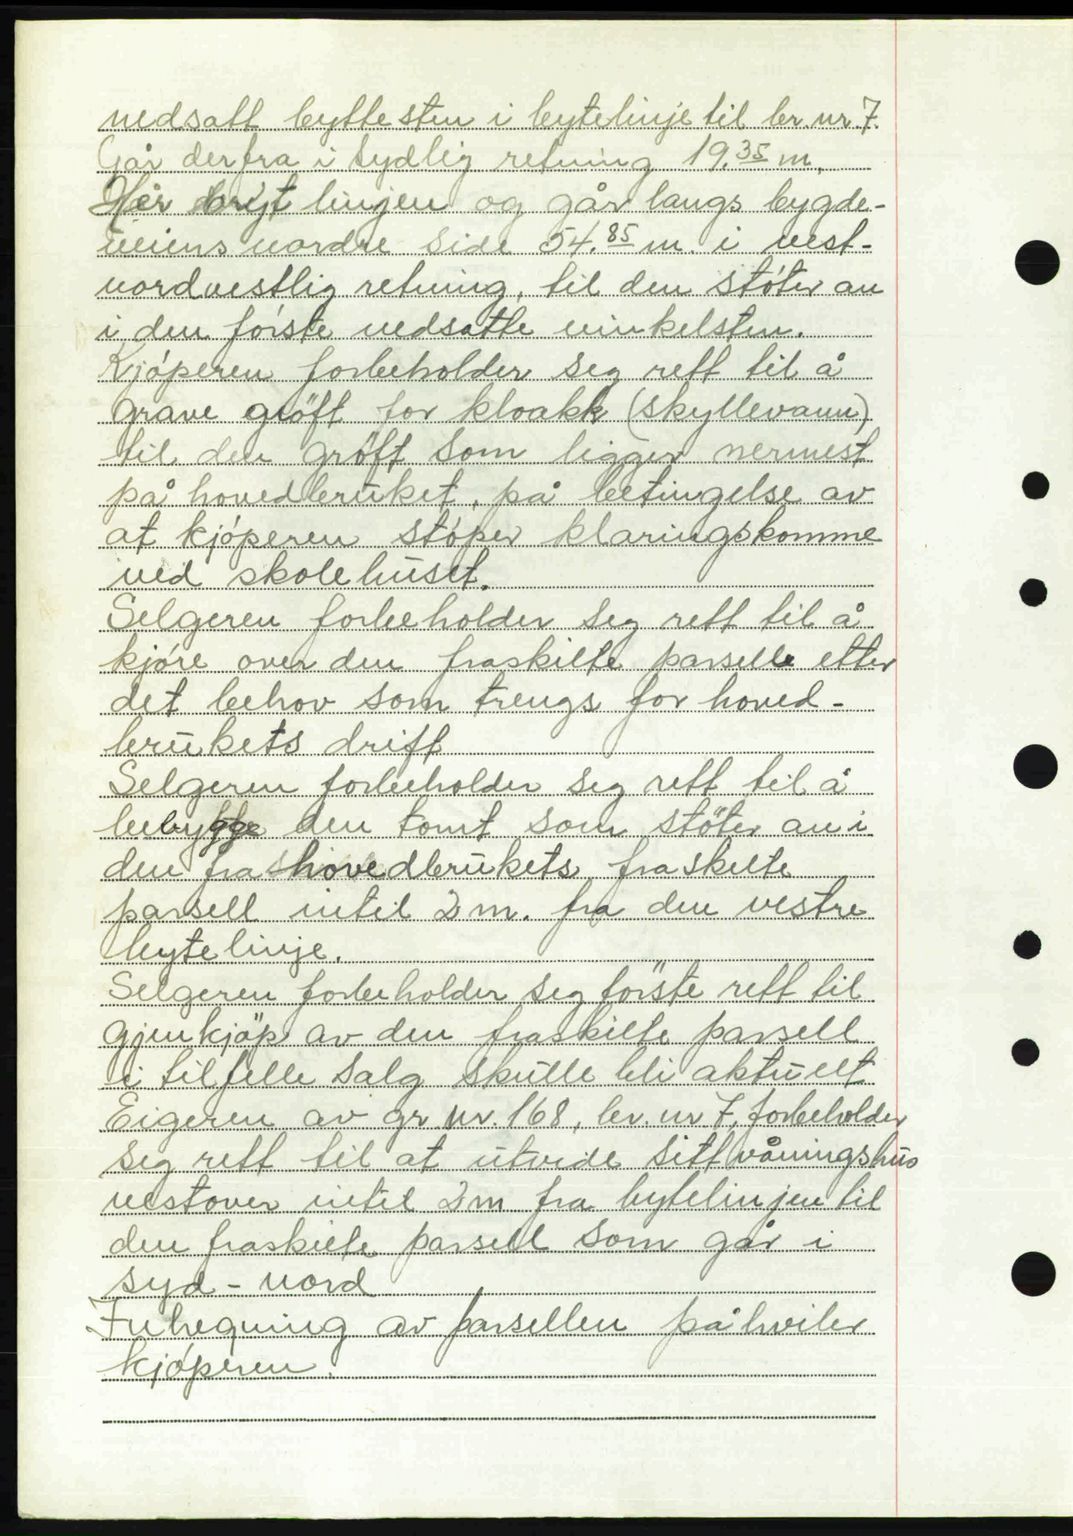 nedsatt byttesten i bytelinje til br. nr. 7.
Går derfra i sydlig retning 19.35 m.
Her bryt linjen og går langs bygde-
veiens nordre side 54.85 m. i vest-
nordvestlig retning, til den stóter an
i den fórste nedsatte vinkelsten.
Kjóperen forbeholder seg rett til å
grave gröft for kloakk (skyllevann)
til den gröft som ligger nermest
på hovedbruket, på betingelse av
at kjóperen stóper klaringskomme
ved skolehuset.
Selgeren forbeholder seg rett til å
kjóre over den fraskilte parselle etter
det behov som trengs for hoved-
brukets drift
Selgeren forbeholder seg rett til å
bebygge den tomt som stöter an i
den fra hovedbrukets fraskilte
parsell intil 2 m. fra den vestre
bytelinje.
Selgeren forbeholder seg förste rett til
gjenkjöp av den fraskilte parsell
i tilfelle salg skulle bli aktuelt
Eigeren av gr. nr. 168, br. nr 7, forbeholder
seg rett til at utvide sitt våningshus
vestover intil 2 m fra bytelinjen til
den fraskilte parsell som går i
syd - nord
Inhegning av parsellen påhviler
kjóperen.